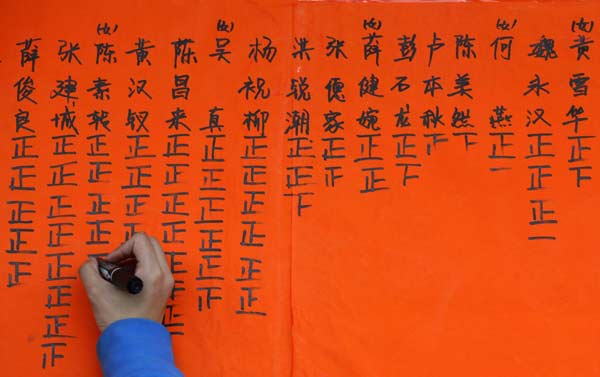 (女)黄雪华正正下
魏永汉正正正一
(女)何燕正一
陈美然下
卢本秋正
彭石龙正下
(女)薛健婉正正
张便家正正
洪锐潮正正下
杨祝柳正正正正正正
(女)吴真正正正正正正
陈昌来正正正正正正
黄汉钗正正正
(女)陈素转正正正正
张建城正正正正正正正下
薛俊良正正正正正